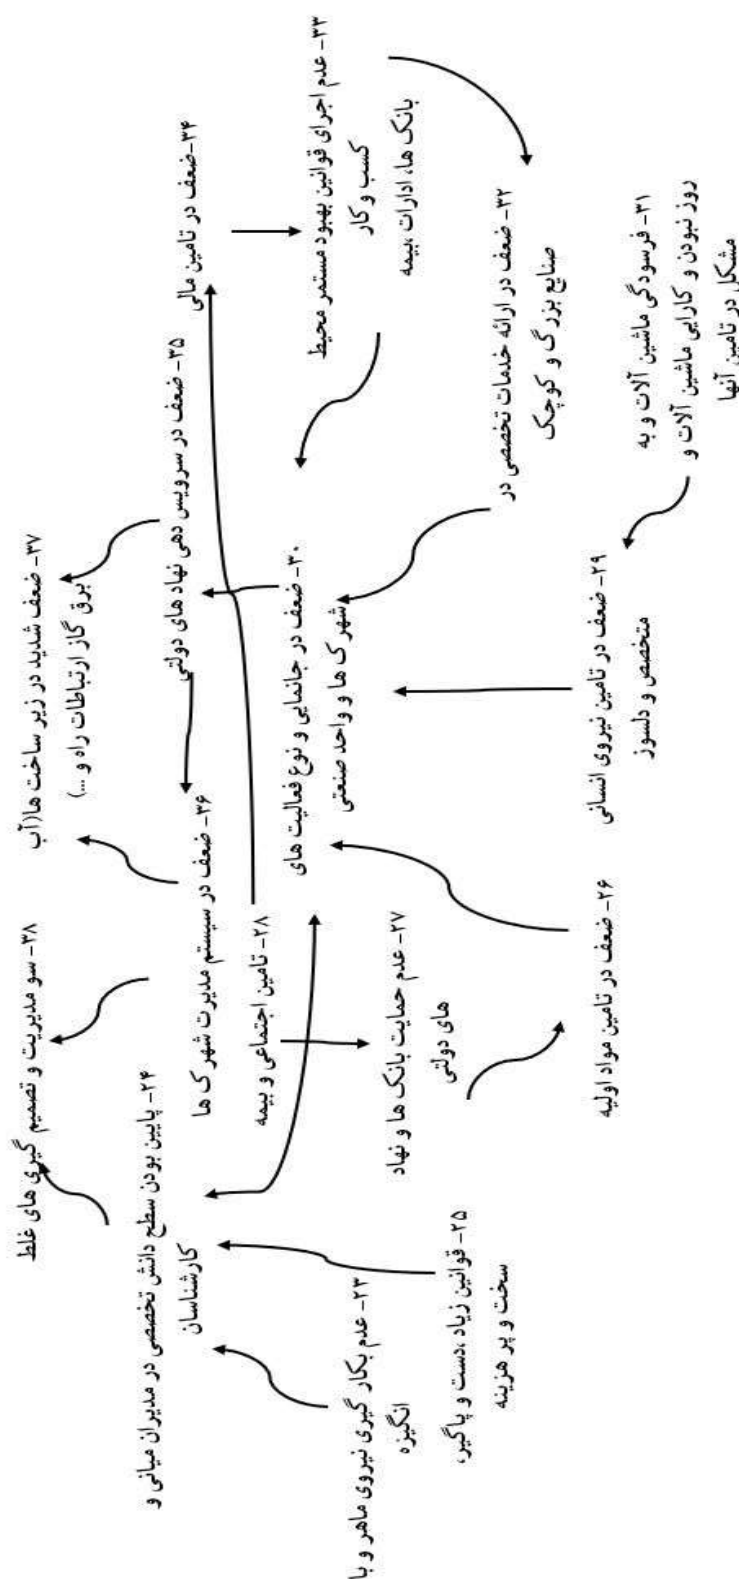 ۲۳- عدم بکار گیری نیروی ماهر و با
انگیزه
۲۴- پایین بودن سطح دانش تخصصی در مدیران میانی و
کارشناسان
۲۵- قوانین زیاد ،دست و پاگیر،
سخت و پر هزینه
۲۶- ضعف در تامین مواد اولیه
۲۷- عدم حمایت بانک ها و نهاد
های دولتی
۲۸- تامین اجتماعی و بیمه
۲۹- ضعف در تامین نیروی انسانی
متخصص و دلسوز
۳۰- ضعف در جانمایی و نوع فعالیت های
شهرک ها و واحد صنعتی
۳۱- فرسودگی ماشین آلات و به
روز نبودن و کارایی ماشین آلات و
مشکل در تامین آنها
۳۲- ضعف در ارائه خدمات تخصصی در
صنایع بزرگ و کوچک
۳۳- عدم اجرای قوانین بهبود مستمر محیط
کسب و کار
بانک ها، ادارات ،بیمه
۳۴-ضعف در تامین مالی
۳۵- ضعف در سرویس دهی نهاد های دولتی
۳۶- ضعف در سیستم مدیرت شهرک ها
۳۷- ضعف شدید در زیر ساخت ها(آب
برق گاز ارتباطات راه و ...)
۳۸- سو مدیریت و تصمیم گیری های غلط